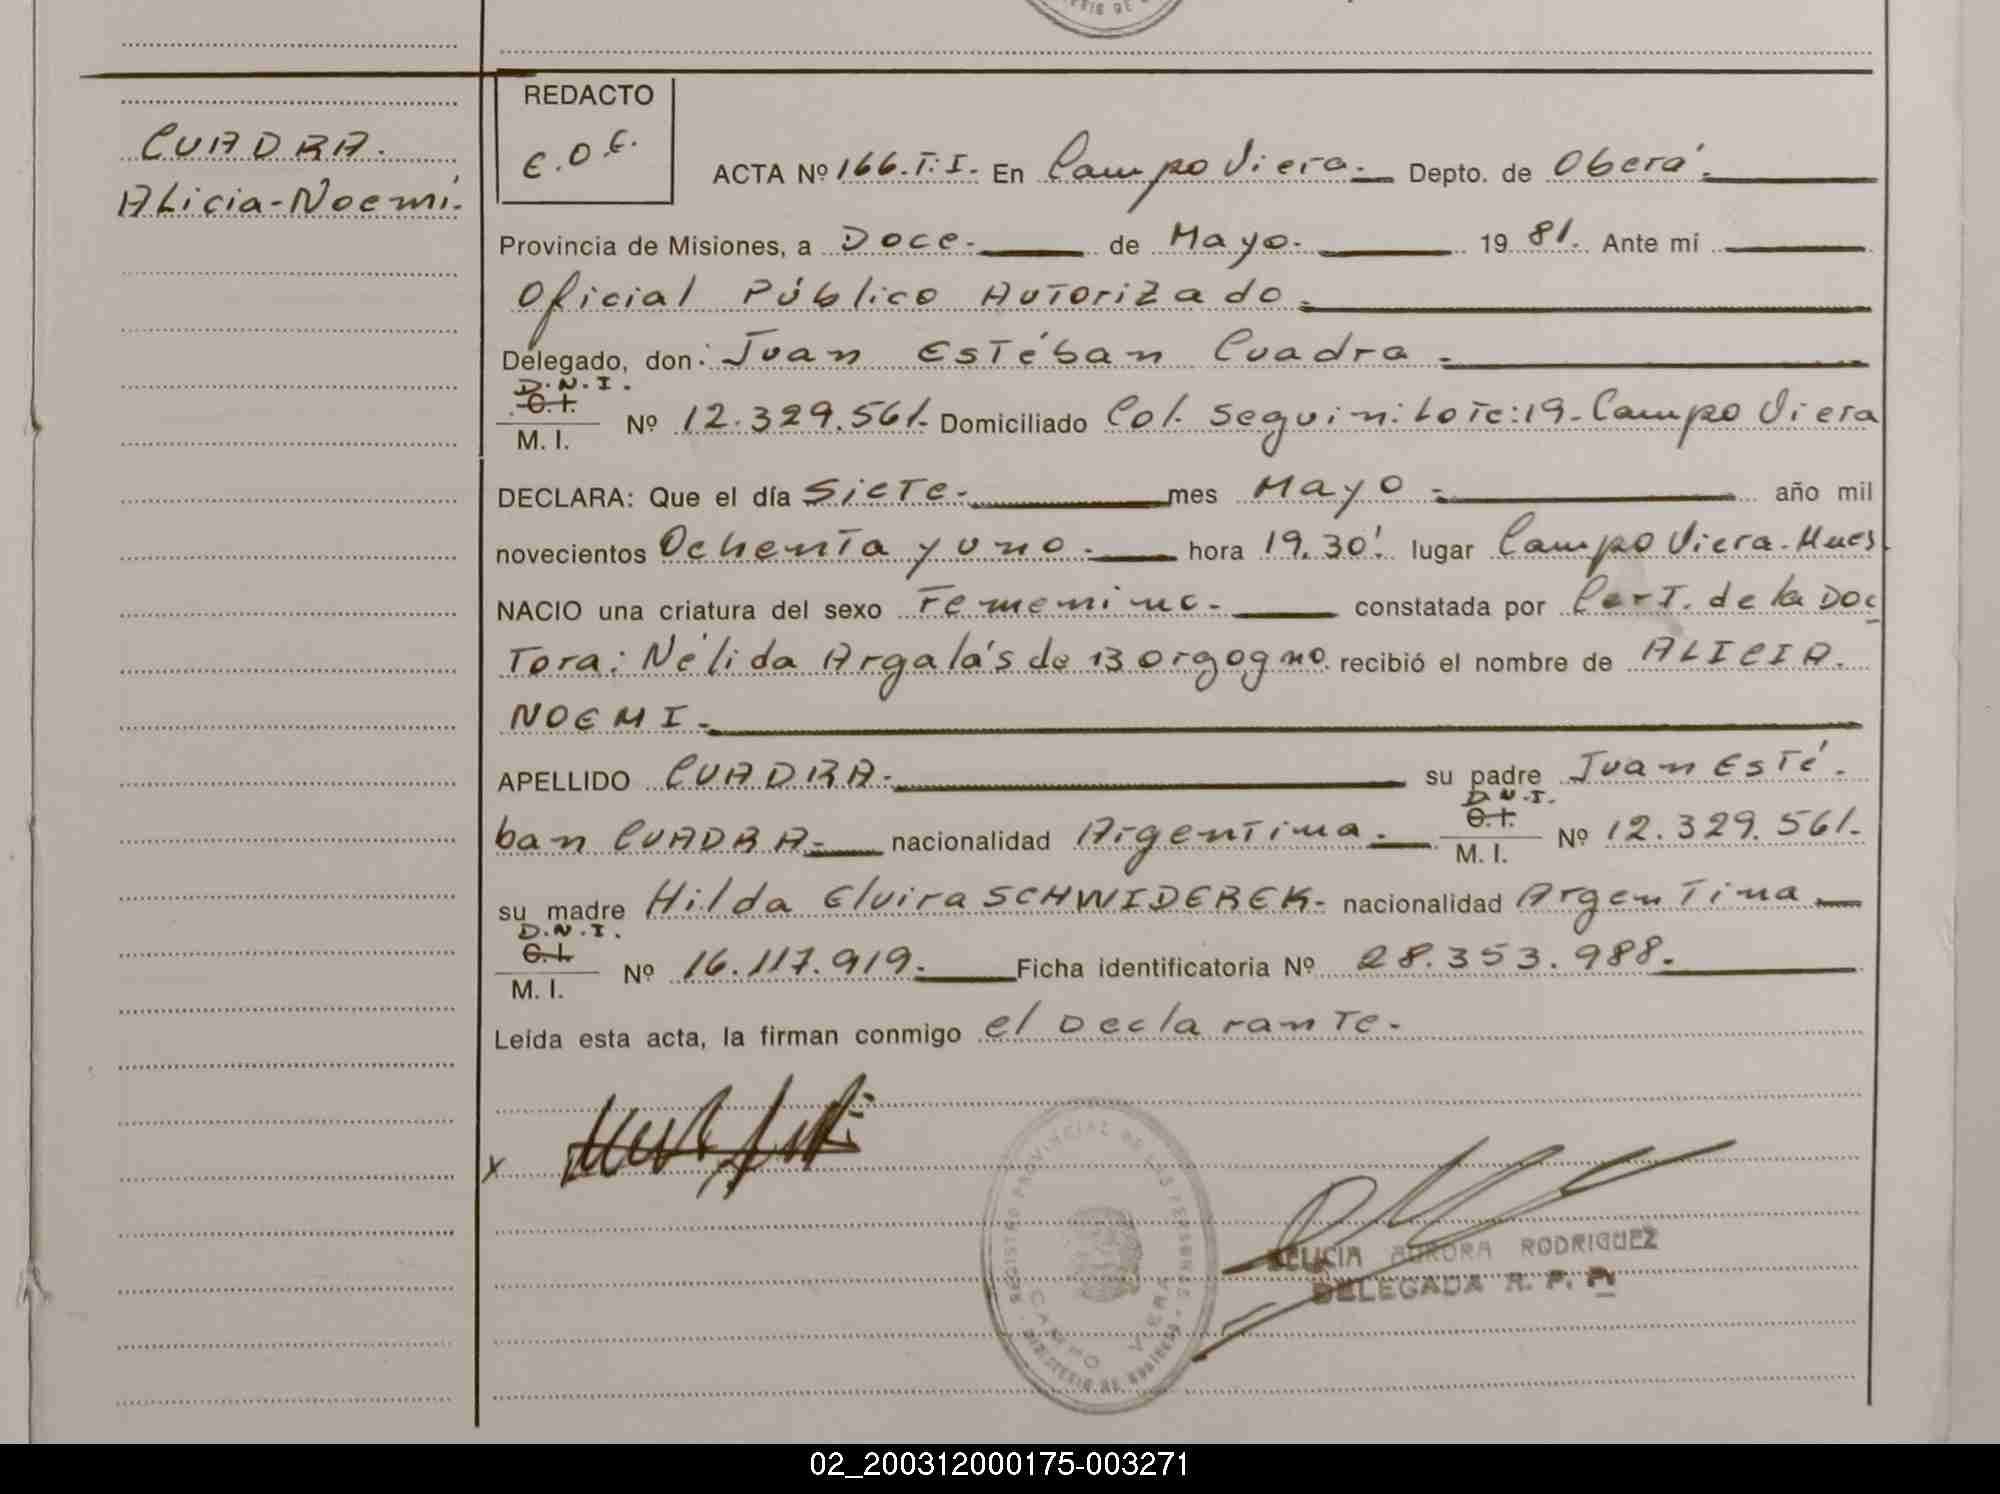 CUADRA.
Alicia-Noemí.
REDACTO
E.O.E.
ACTA Nº 166.T:I. En Campo Viera.- Depto. de Oberá.
Provincia de Misiones, a Doce.- de Mayo.- 1981. Ante mí
Oficial Público Autorizado.-
Delegado, don: Juan Estéban Cuadra.-
D.N.I.
C.I.
M. I.
Nº 12.329.561.- Domiciliado Col. Seguin: Lote:19-Campo Viera
DECLARA: Que el día Siete.- mes Mayo.- año mil
novecientos Ochenta y uno.- hora 19.30'. lugar Campo Viera-Mnes.
NACIO una criatura del sexo Femenino.- constatada por Cert. de la Doc
tora: Nélida Argalás de Borgogno. recibió el nombre de ALICIA.
NOEMI.-
APELLIDO CUADRA.- su padre Juan Esté.
ban CUADRA.- nacionalidad Argentina.- D.N.I. C.I. M. I. Nº 12.329.561.
su madre Hilda Elvira SCHWIDEREK- nacionalidad Argentina
D.N.I.
C.I.
M. I.
Nº 16.117.919.- Ficha identificatoria Nº 28.353.988.-
Leída esta acta, la firman conmigo el Declarante.-
x
REGISTRO PROVINCIAL DE LAS PERSONAS
CAMPO VIERA
MINISTERIO DE GOBIERNO
AURORA RODRIGUEZ
DELEGADA R. P. P.
02_200312000175-003271